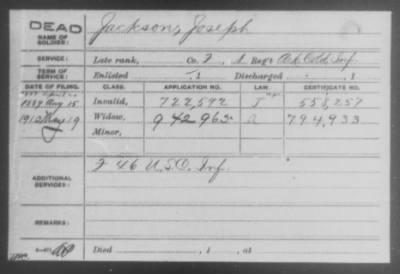 DEAD
NAME OF SOLDIER: Jackson, Joseph
SERVICE: Late rank, Co. F, 1. Reg't Ark Cold. Inf.
TERM OF SERVICE: Enlisted , 1 Discharged , 1
DATE OF FILING. CLASS. APPLICATION NO. LAW. CERTIFICATE NO.
1889 Aug 15 Invalid, 722,592 558,257
1910 May 19 Widow, 942963 794,933
Minor,
ADDITIONAL SERVICES: F 46 U.S.C. Inf.
REMARKS:
Died , 1 , at